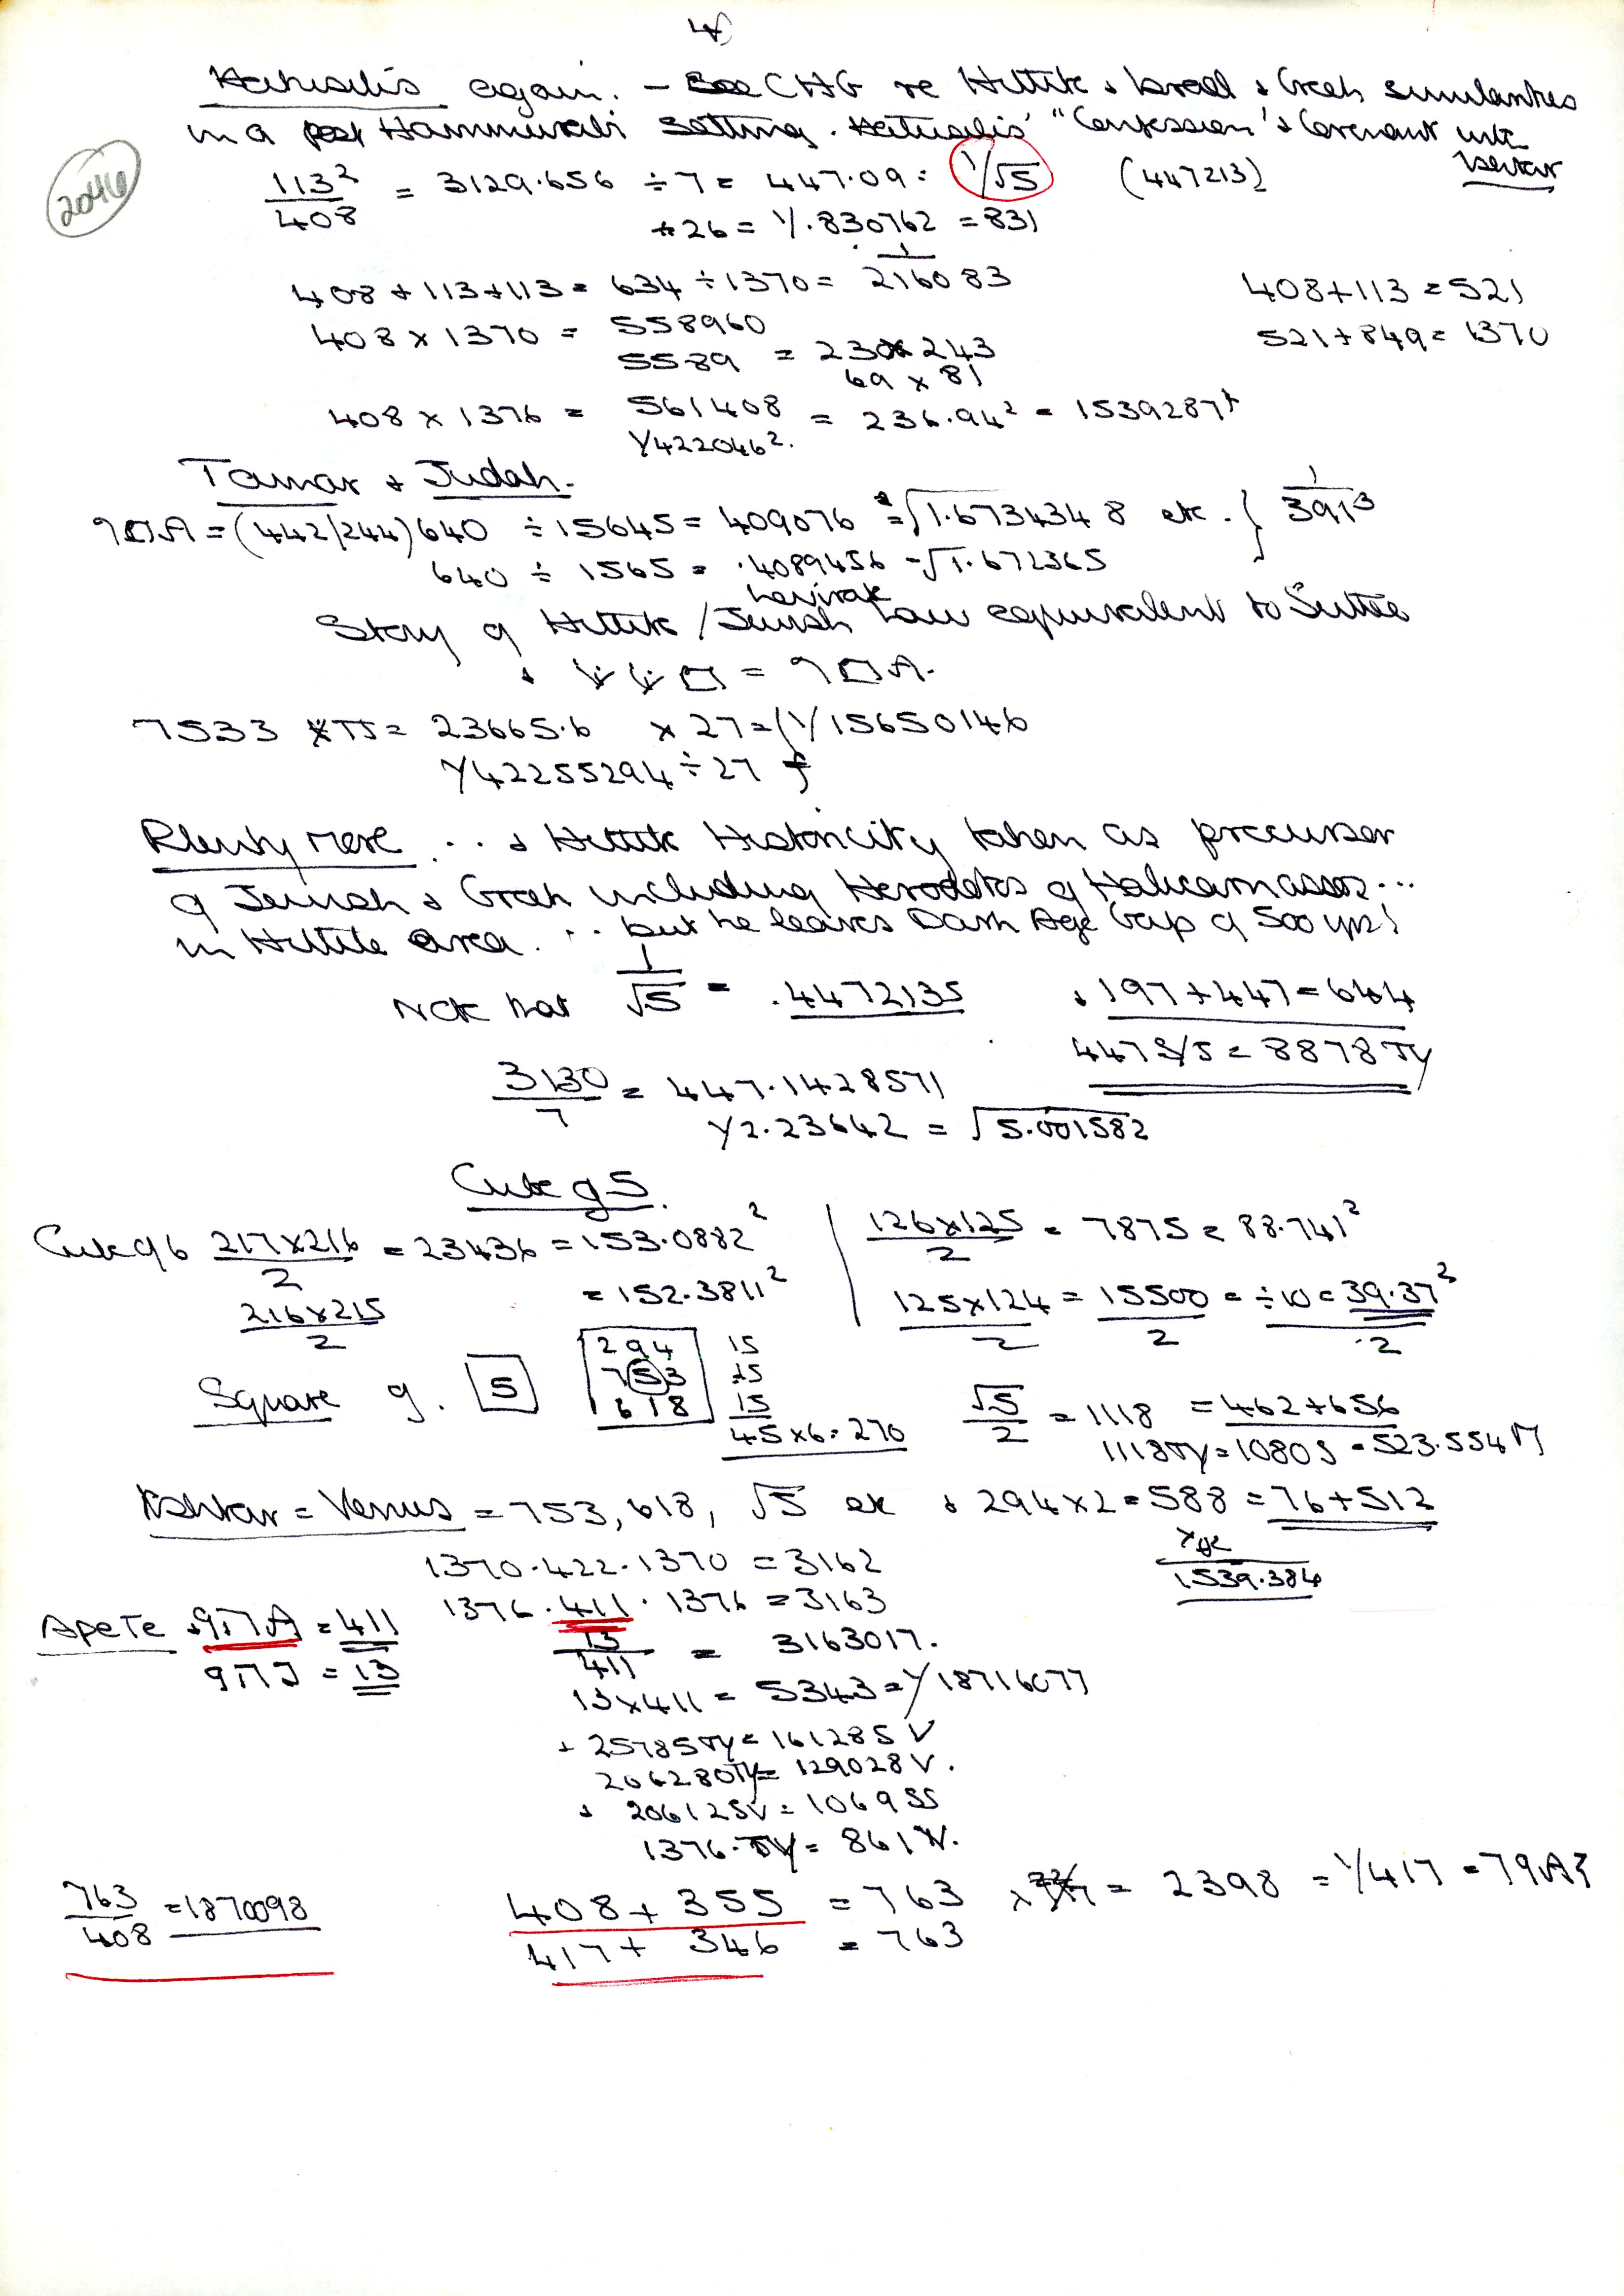 4
Hatusilis again. – See CHG re Hittite & Israel & Greek similarities
in a post Hammurabi setting. Hatusilis' "Confession" & Covenant with
Ishtar
2046
113² / 408 = 3129.656 ÷ 7 = 447.09 = 1/√5 (447213)
+26 = 1/.830762 = 831
408 + 113 + 113 = 634 ÷ 1370 = 1/216083
408 + 113 = 521
408 × 1370 = 558960
521 + 849 = 1370
5589 = 230 × 243
69 × 81
408 × 1376 = 561408 = 236.94² = 1539287
1/422046².
Tamar & Judah.
9□A = (442/244) 640 ÷ 15645 = 409076 = √1.6734348 etc. } 1/391³
640 ÷ 1565 = .4089456 = √1.672365
Levirate
Story of Hittite / Jewish Law equivalent to Suttee
& □ = 9□A.
7533 × π = 23665.6 × 27 = (1/15650146
1/42255294 ÷ 27
Plenty more ... & Hittite Historicity taken as precursor
of Jewish & Greek including Herodotos of Halicarnassos...
in Hittite area. ... but he leaves Dark Age Gap of 500 yrs!
Note that 1/√5 = .4472135 & 197 + 447 = 644
447 = 8878 πy
3130 / 7 = 447.1428571
1/2.23642 = √5.001582
Cube of 5.
Cube of 6 217×216 / 2 = 23436 = 153.0882²
126×125 / 2 = 7875 = 88.741²
216×215 / 2 = 152.3811²
125×124 / 2 = 15500 / 2 = ÷10 = 39.37² / 2
Square of. 5
294 15
753 15
618 15
45 × 6 = 270
√5 / 2 = 1118 = 462 + 656
= 523.554
Ishtar = Venus = 753, 618, √5 etc & 294 × 2 = 588 = 76 + 512
1539.384
1370.422.1370 = 3162
1376.411.1376 = 3163
Apete = 411
= 13
13 / 411 = 3163017.
13 × 411 = 5343 = 1/18716077
+ 25785 πy = 16128 SV
206280 πy = 129028 V.
& 206125 V = 1069 SS
1376. πy = 861 V.
763 / 408 = 1870098
408 + 355 = 763 = 2398 = 1/417
417 + 346 = 763